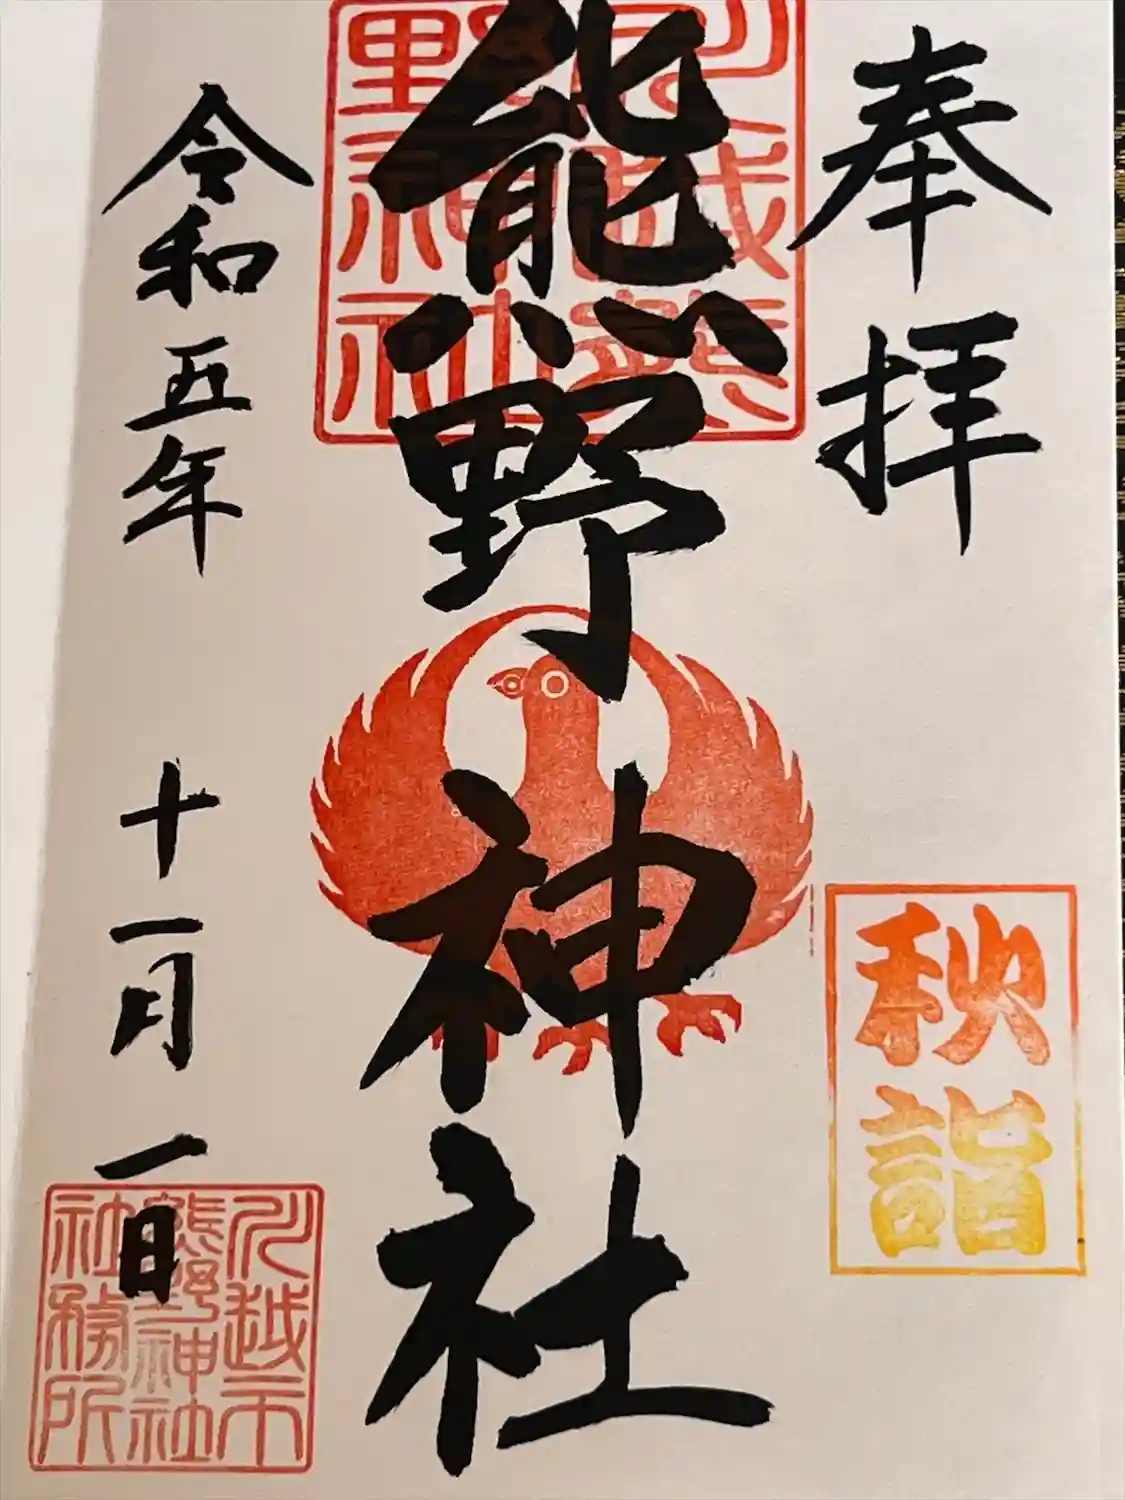 奉拝
秋詣
川越熊
野神社
熊野神社
令和五年 十一月 一日
川越市
熊野神社
社務所